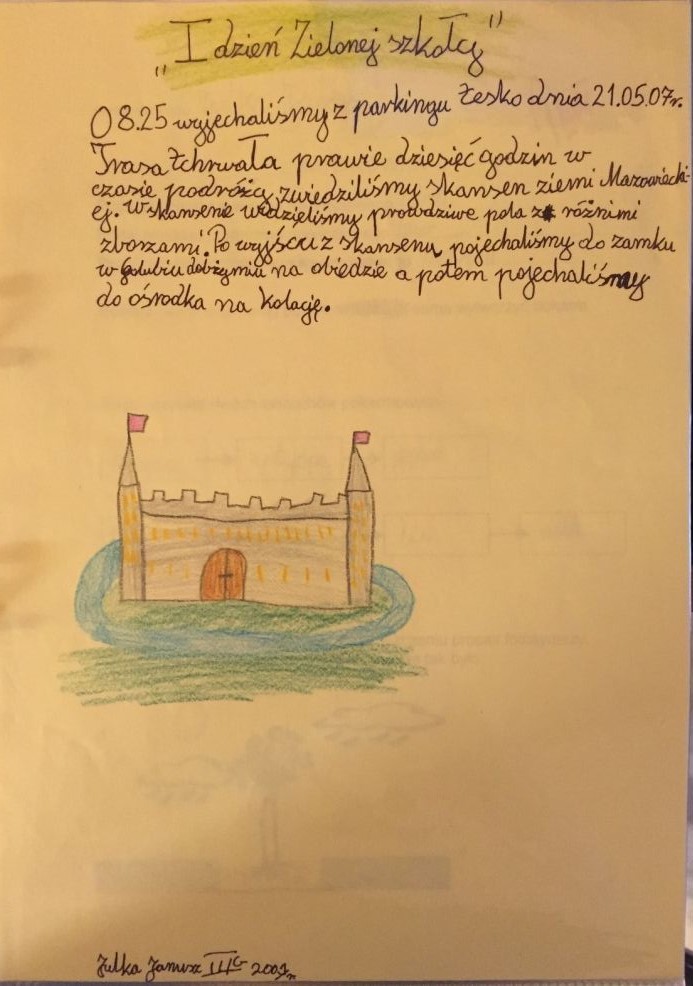 „I dzień Zielonej szkołcy"
O 8.25 wyjechaliśmy z parkingu Łesko dnia 21.05.07r.
Trasa tchrwała prawie dziesięć godzin w
czasie podróżcy zwiedziliśmy skansen ziemi Mazowiecki-
ej. W skansenie widzieliśmy prowdziwe pola z różnimi
zborzami. Po wyjściu z skansenu pojechaliśmy do zamku
w Golubiu dobżymiu na obiedzie a potem pojechaliśmy
do ośrodka na kolację.
Julka Janusz III G 2007r